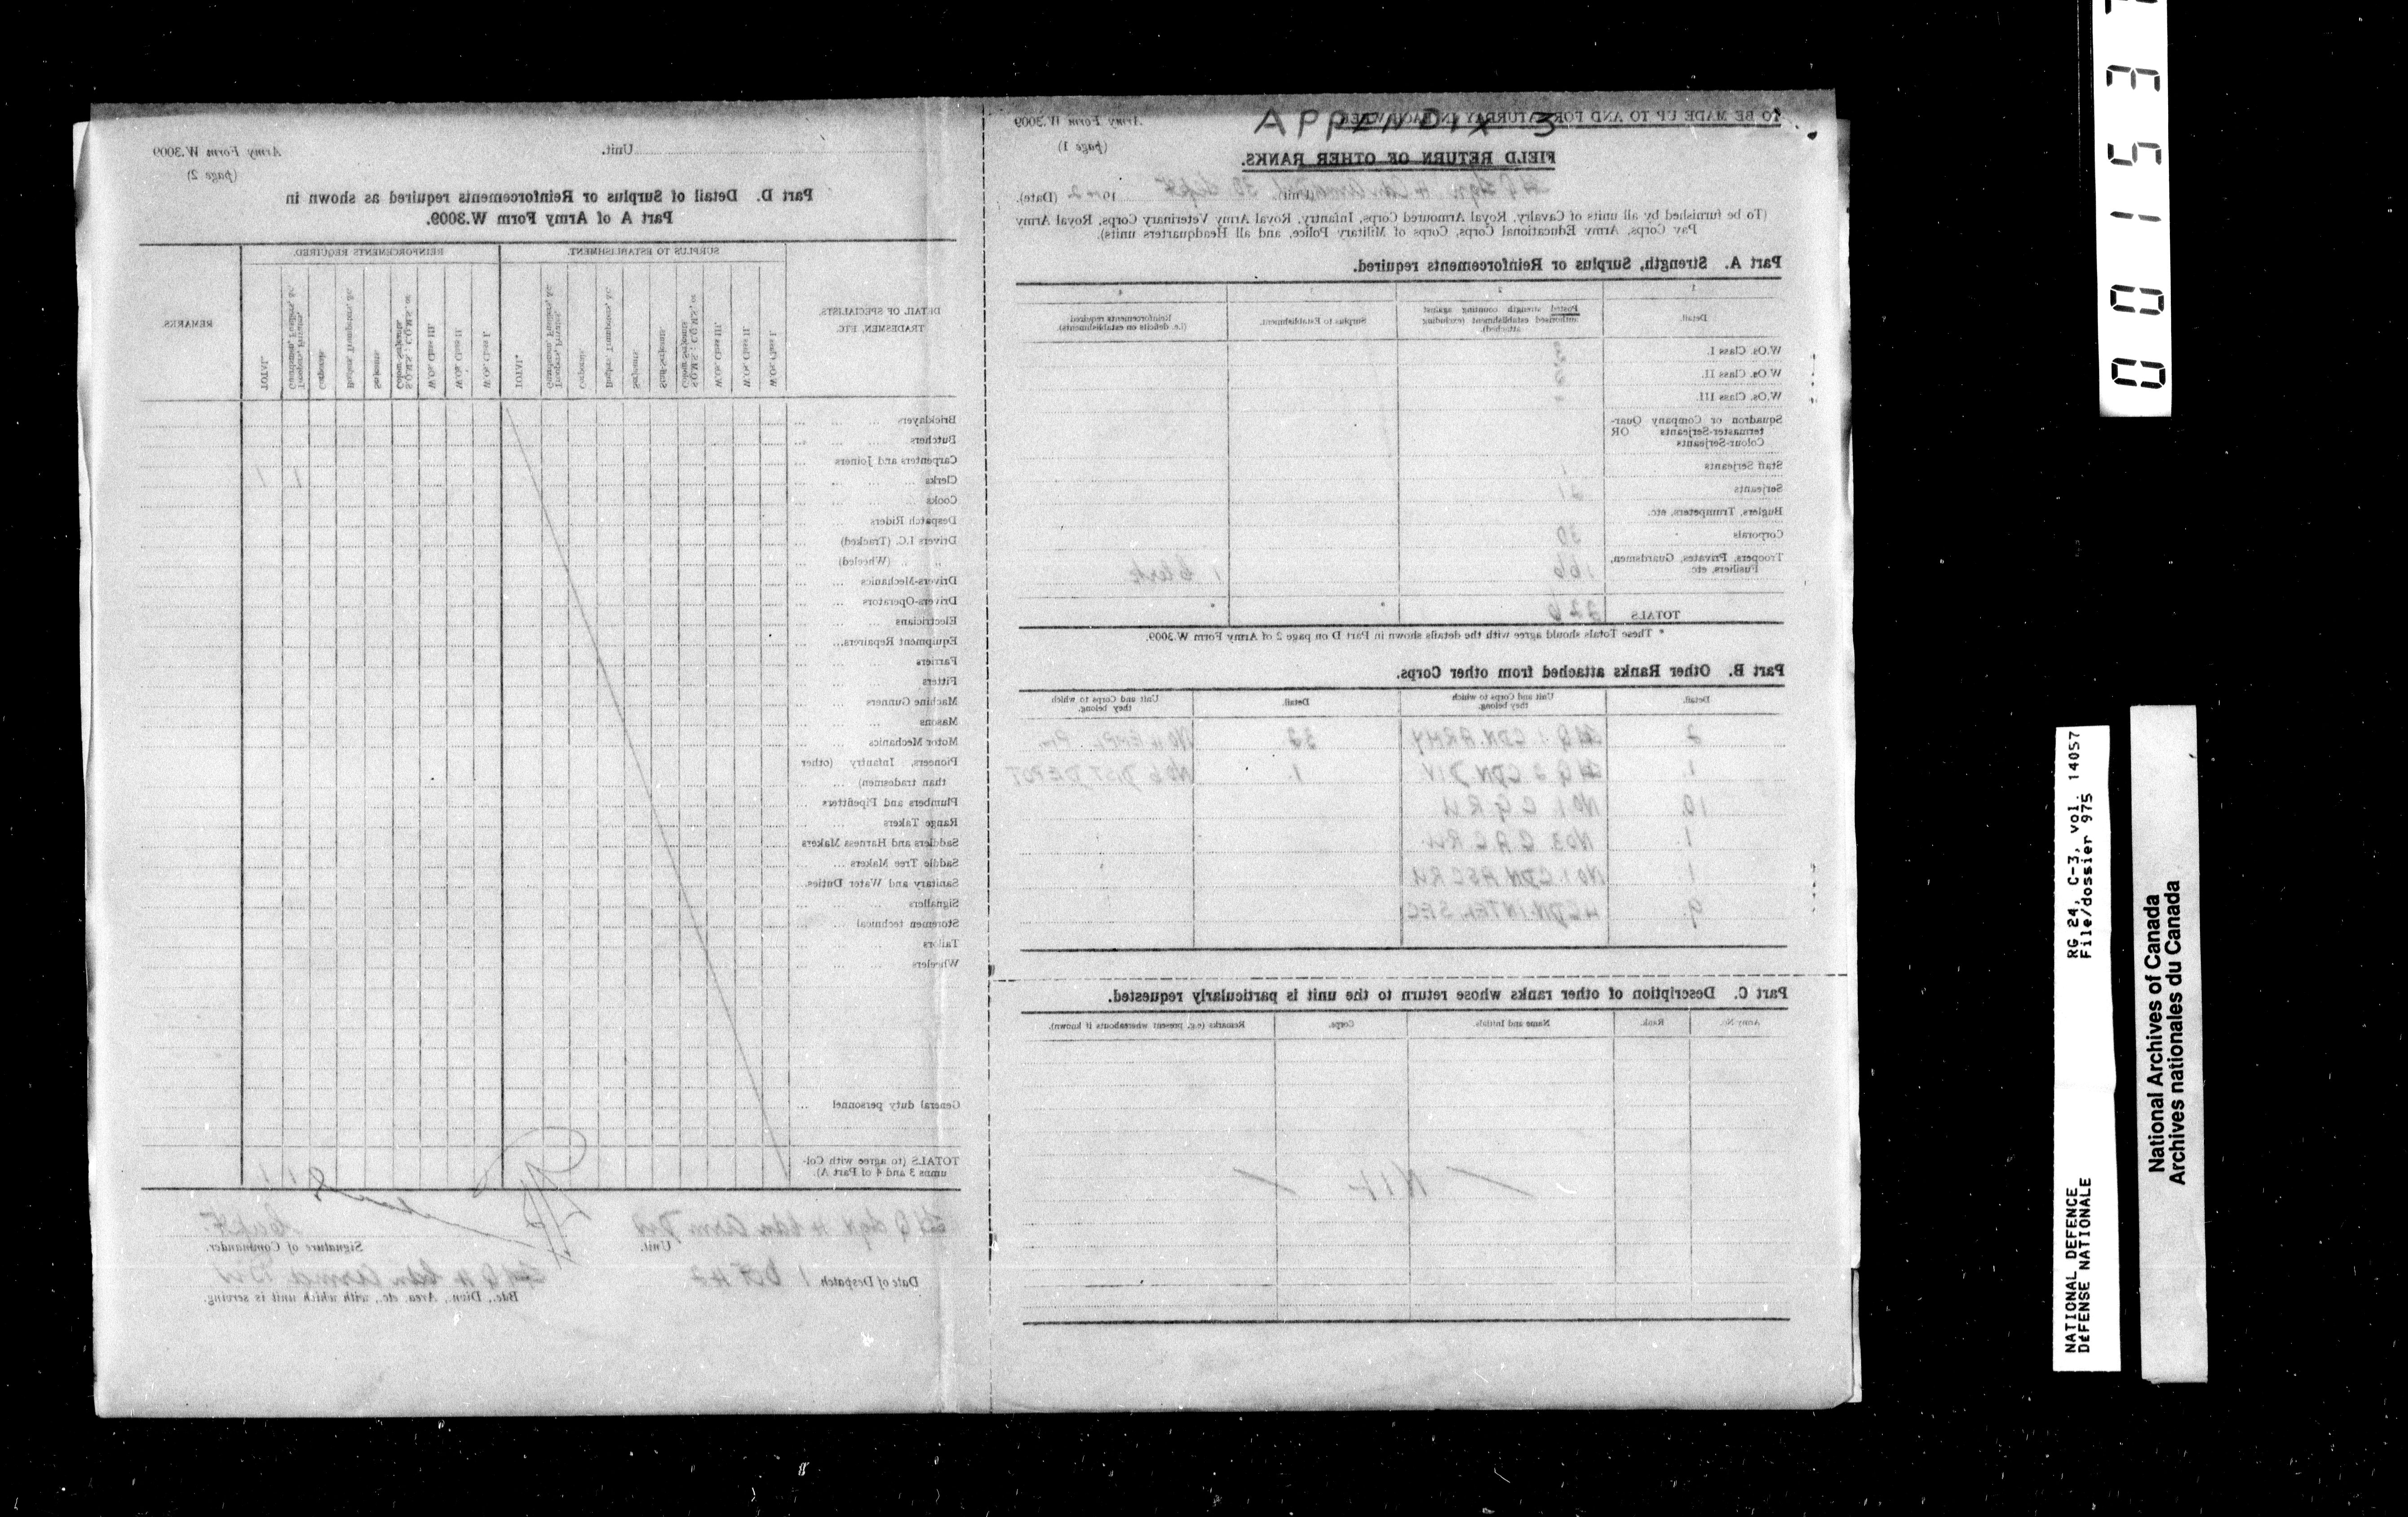 APPENDIX 3
TO BE MADE UP TO AND FOR SATURDAY IN EACH WEEK.
Army Form W.3009
(page 1)
FIELD RETURN OF OTHER RANKS.
1942 (Date).
(To be furnished by all units of Cavalry, Royal Armoured Corps, Infantry, Royal Army Veterinary Corps, Royal Army
Pay Corps, Army Educational Corps, Corps of Military Police, and all Headquarters units).
Part A. Strength, Surplus or Reinforcements required.
1 2 3 4
Detail. Posted strength counting against authorised establishment (excluding attached). Surplus to Establishment. Reinforcements required (i.e. deficits on establishments).
W.Os. Class I.
W.Os. Class II.
W.Os. Class III. -
Squadron or Company Quar-
termaster-Serjeants OR
Colour-Serjeants
Staff Serjeants 1
Serjeants 21
Buglers, Trumpeters, etc.
Corporals 30
Troopers, Privates, Guardsmen,
Fusiliers, etc. 166 1 Clerk
TOTALS 226
* These Totals should agree with the details shown in Part D on page 2 of Army Form W.3009.
Part B. Other Ranks attached from other Corps.
Detail. Unit and Corps to which they belong. Detail. Unit and Corps to which they belong.
2 HQ 1 CDN. ARMY 32 No 11 EMPL. Pn.
1. HQ 2 CDN DIV 1. No 6 DIST. DEPOT
10. No 1. C G R U
1. No 3. C A C R U
1. No 1. CDN ASC RU
9. 4 CDN. INTEL. SEC
Part C. Description of other ranks whose return to the unit is particularly requested.
Army No. Rank. Name and Initials. Corps. Remarks (e.g. present whereabouts if known).
— NIL —
Unit.
Army Form W.3009
(page 2)
Part D. Detail of Surplus or Reinforcements required as shown in
Part A of Army Form W.3009.
DETAIL OF SPECIALISTS, TRADESMEN, ETC. SURPLUS TO ESTABLISHMENT. REINFORCEMENTS REQUIRED. REMARKS.
W.Os. Class I. W.Os. Class II. W.Os. Class III. Colour-Serjeants Staff-Serjeants Serjeants Buglers, Trumpeters, &c. Corporals TOTAL*
W.Os. Class I. W.Os. Class II. W.Os. Class III. Serjeants Buglers, Trumpeters, &c. Corporals TOTAL.
Bricklayers
Butchers
Carpenters and Joiners
Clerks 1 1
Cooks
Despatch Riders
Drivers I.C. (Tracked)
" " (Wheeled)
Drivers-Mechanics
Drivers-Operators
Electricians
Equipment Repairers
Farriers
Fitters
Machine Gunners
Masons
Motor Mechanics
Pioneers, Infantry (other
than tradesmen)
Plumbers and Pipefitters
Range Takers
Saddlers and Harness Makers
Saddle Tree Makers
Sanitary and Water Duties.
Signallers
Storemen technical
Tailors
Wheelers
General duty personnel
TOTALS (to agree with Col-
umns 3 and 4 of Part A). 1 1
HQ Sqn 4 Cdn Arm Div
Unit. Signature of Commander.
Date of Despatch 1 Oct 42 HQ 4 Cdn Armd Div
Bde., Divn., Area, etc., with which unit is serving.
00153
NATIONAL DEFENCE RG 24, C-3, vol. 14057
DÉFENSE NATIONALE File/dossier 975
National Archives of Canada
Archives nationales du Canada